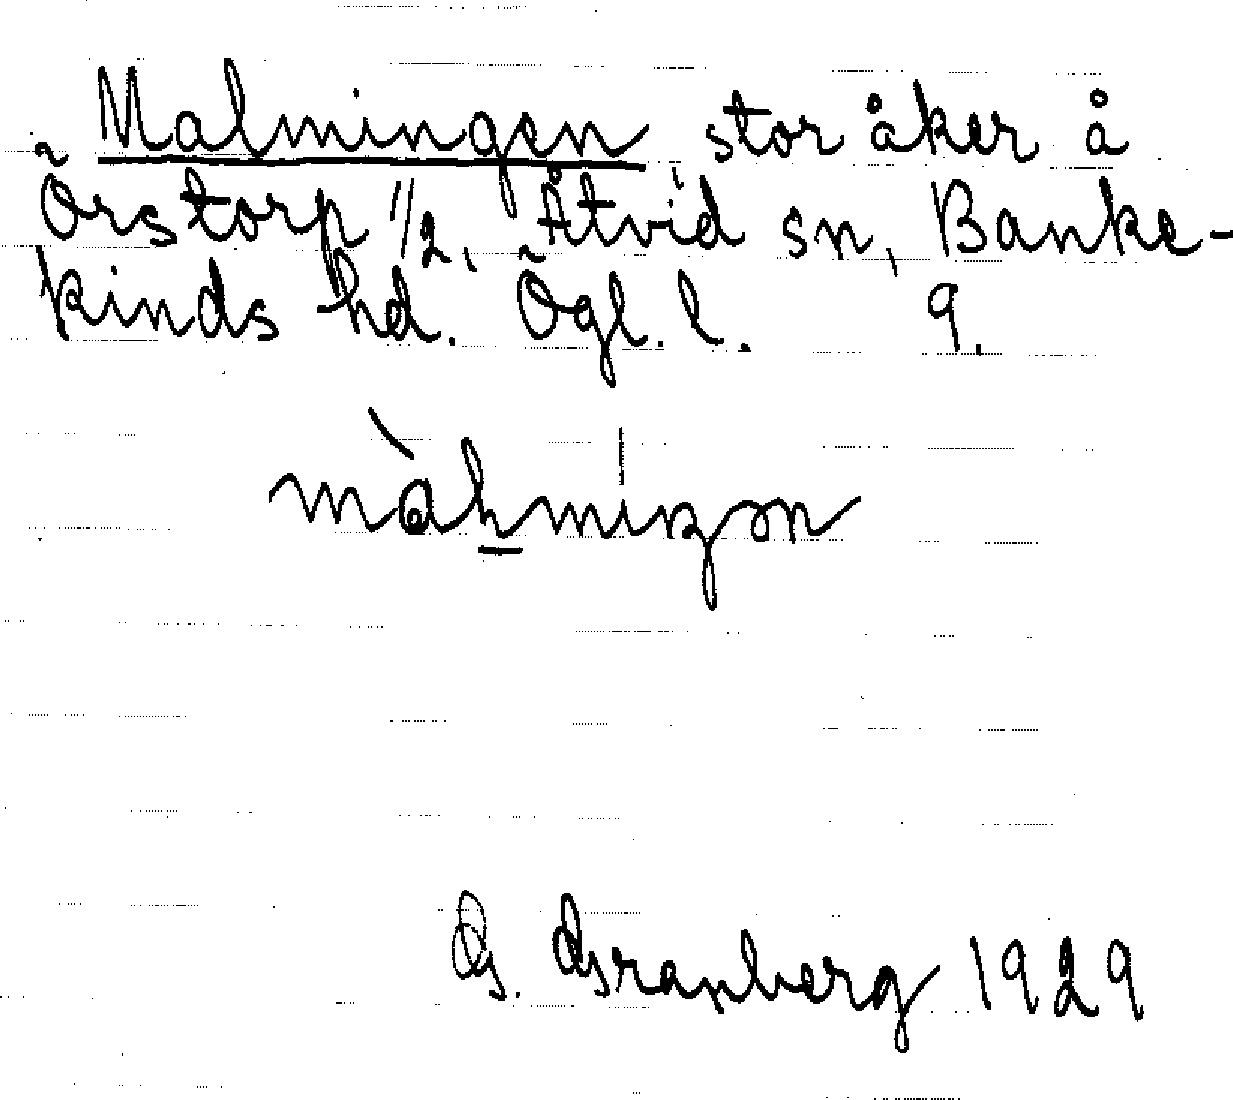 Malmingen stor åker å
Örstorp 1/2, Åtvid sn, Banke-
kinds hd. Ögl. l. 9.
G. Granberg 1929